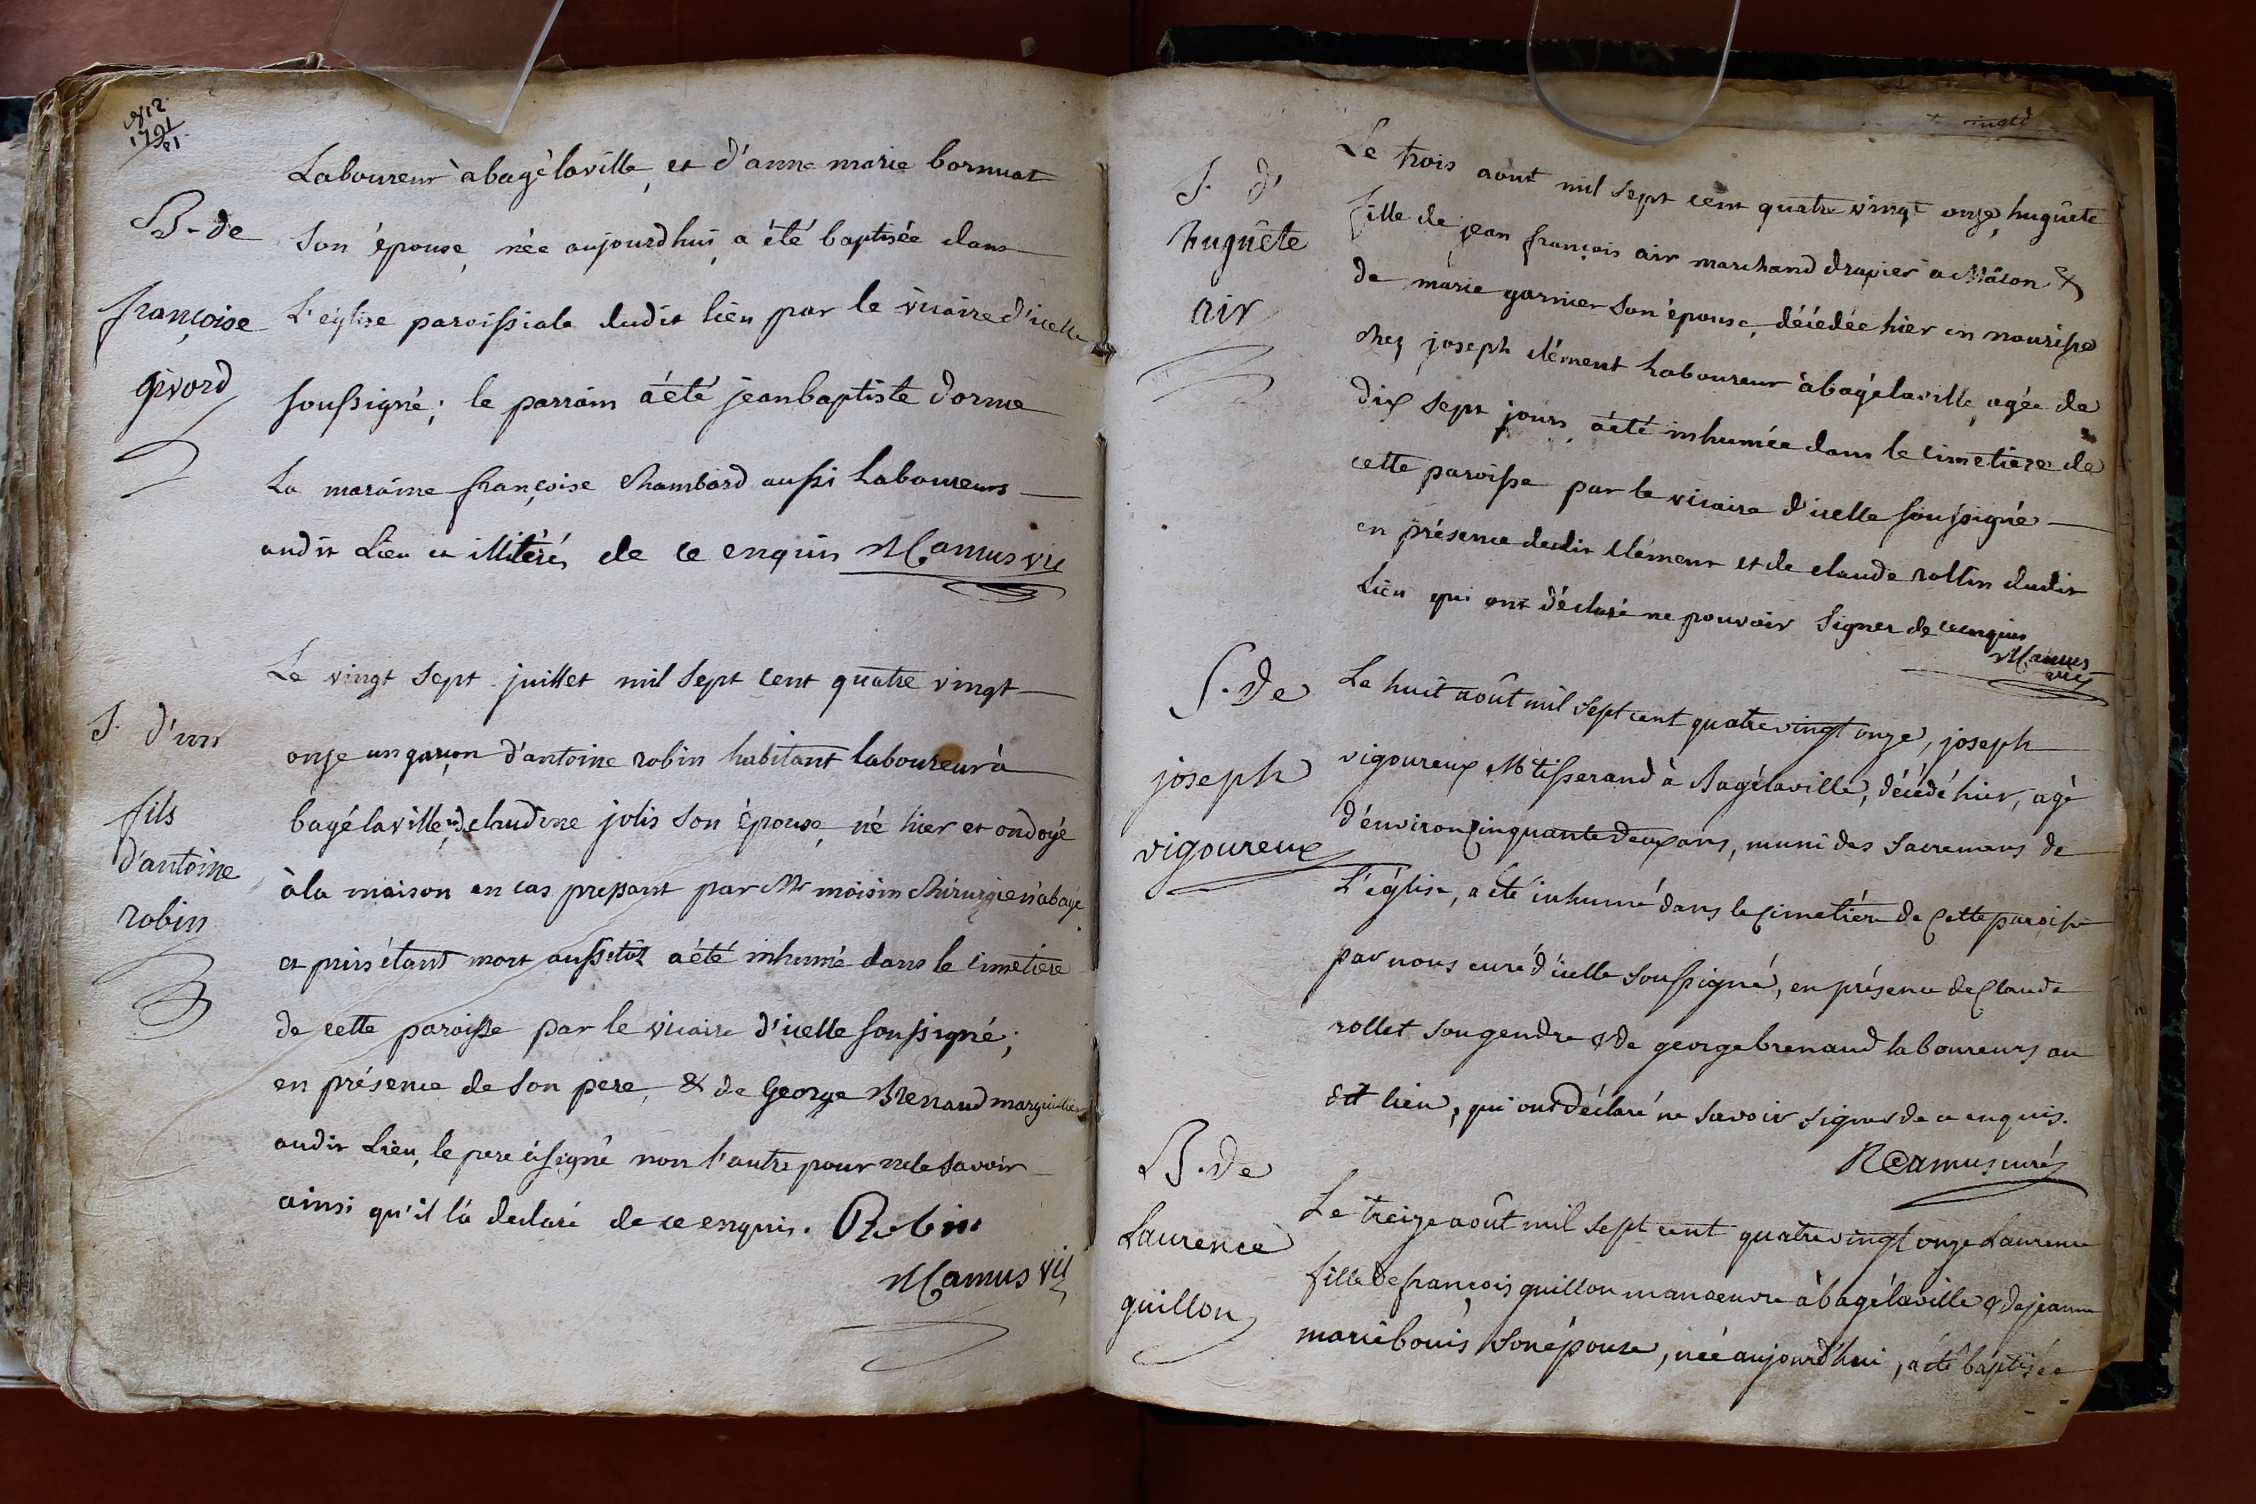 1791
Laboureur à bagélaville, et d'anne marie bornuat
B. de
son épouse, née aujourdhui, a été baptisée dans
françoise
L'église paroissiale dudit lieu par le vicaire d'icelle
givord
soussigné; le parrain a été jean baptiste dorme
La maraine françoise Chambard aussi Laboureurs
audit Lieu et illitérés de ce enquis Mamus vic
Le vingt sept juillet mil sept cent quatre vingt
S. d'un
onze un garçon d'antoine robin habitant laboureur à
fils
bagélaville, & de claudine jolis son épouse, né hier et ondoyé
d'antoine
à la maison en cas pressant par Mr moisin Chirurgien à bagé
robin
et puis étant mort aussitôt a été inhumé dans le cimetiére
de cette paroisse par le vicaire d'icelle soussigné;
en présence de son pere, & de George Brenaud marguillier
audit Lieu, le pere a signé non l'autre pour ne le savoir
ainsi qu'il l'a declaré de ce enquis. Robin
Mamus vic
S. d'
huguête
air
Le trois aout mil sept cent quatre vingt onze, huguête
fille de jean françois air marchand drapier a Mâcon &
de marie garnier son épouse, décedée hier en nourisse
chez joseph clément Laboureur à bagélaville, agée de
dix sept jours, a été inhumée dans le cimetiere de
cette paroisse par le vicaire d'icelle soussigné
en présence dudit clément et de claude rollin dudit
Lieu qui ont déclaré ne pouvoir signer de ce enquis
Mamus
vic
S. de
joseph
vigoureux
Le huit août mil sept cent quatre vingt onze, joseph
vigoureux Me tisserand à Bagélaville, décédé hier, agé
d'environ cinquante deux ans, muni des sacremens de
L'église, a été inhumé dans le cimetière de cette paroisse
par nous curé d'icelle soussigné, en présence de Claude
rollet son gendre & de george brenaud laboureurs au
dit lieu, qui ont déclaré ne savoir signer de ce enquis.
Camus curé
B. de
Laurence
guillon
Le treize août mil sept cent quatre vingt onze Laurence
fille de françois guillon manoeuvre à bagélaville & de jeanne
marie bouis son épouse, née aujourd'hui, a été baptisée